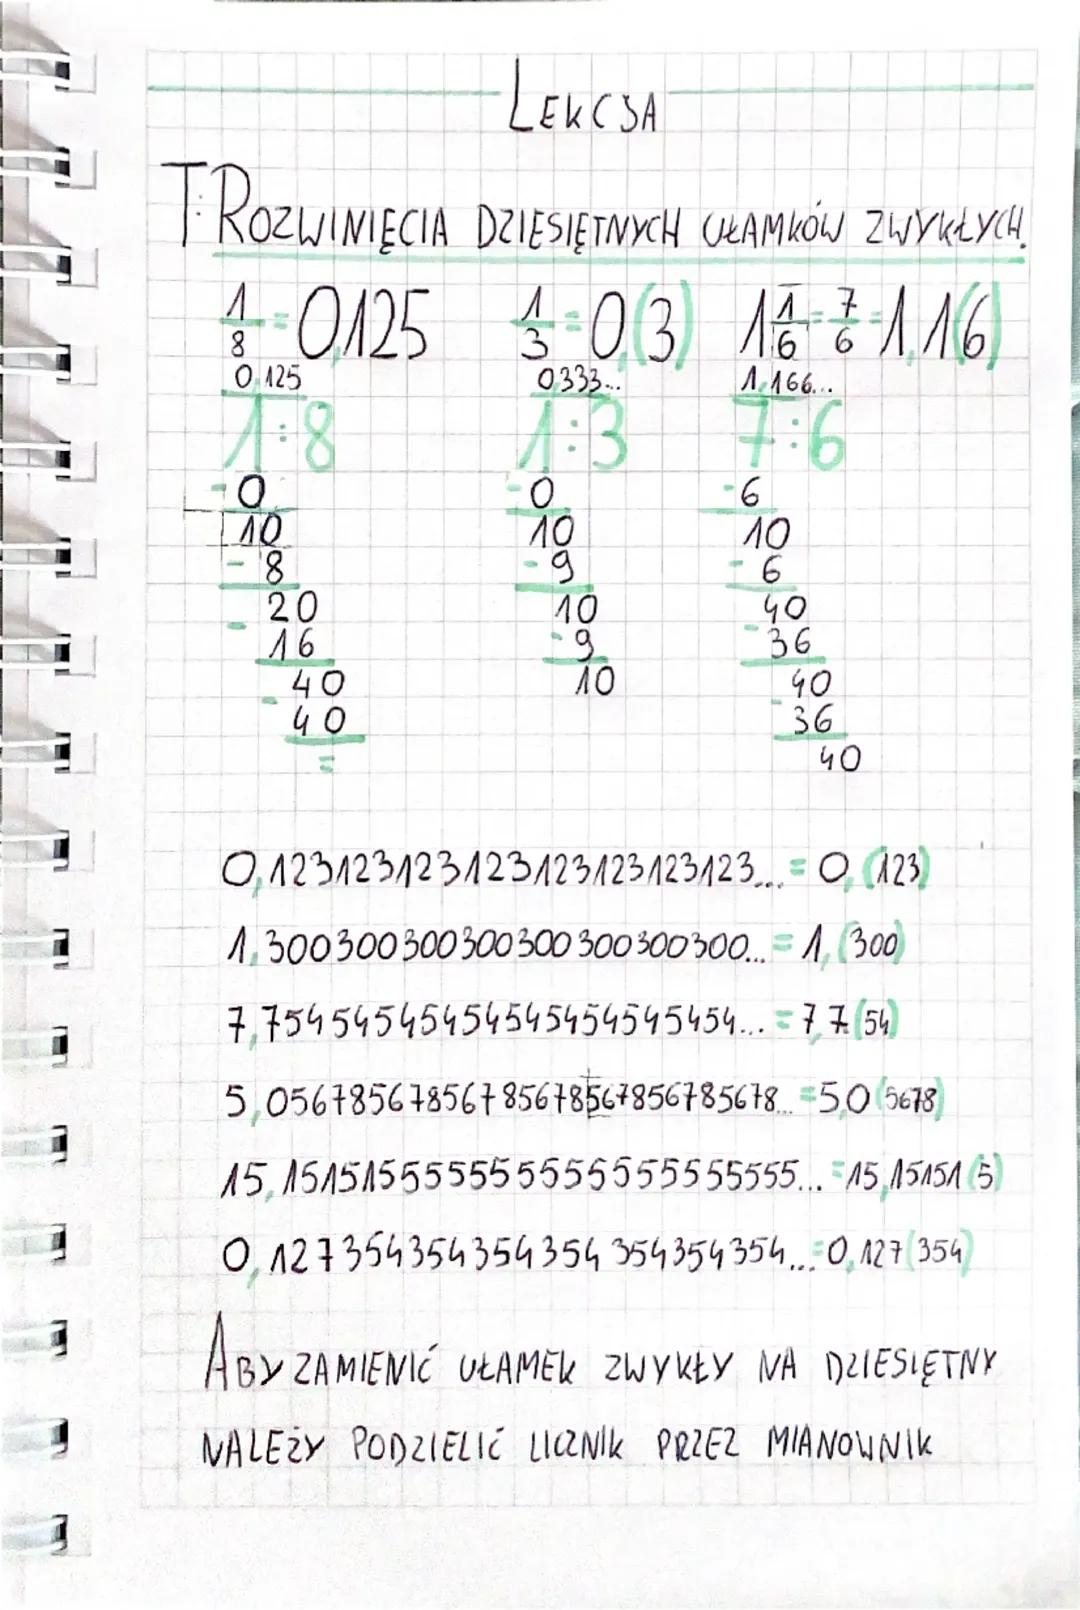 LEKCJA
T: ROZWINIĘCIA DZIESIĘTNYCH UŁAMKÓW ZWYKŁYCH.
1/8 = 0,125 1/3 = 0,(3) 1 1/6 = 7/6 = 1,1(6)
0,125 0,333... 1,166...
1:8 1:3 7:6
-0 -0 -6
10 10 10
-8 -9 -6
20 10 40
-16 -9 -36
40 10 40
-40 -36
= 40
0,123123123123123123123123... = 0,(123)
1,300300300300300300300300... = 1,(300)
7,754545454545454545454... = 7,7(54)
5,05678567856785678567856785678... = 5,0(5678)
15,151515555555555555555... = 15,15151(5)
0,127354354354354354354354... = 0,127(354)
ABY ZAMIENIĆ UŁAMEK ZWYKŁY NA DZIESIĘTNY
NALEŻY PODZIELIĆ LICZNIK PRZEZ MIANOWNIK